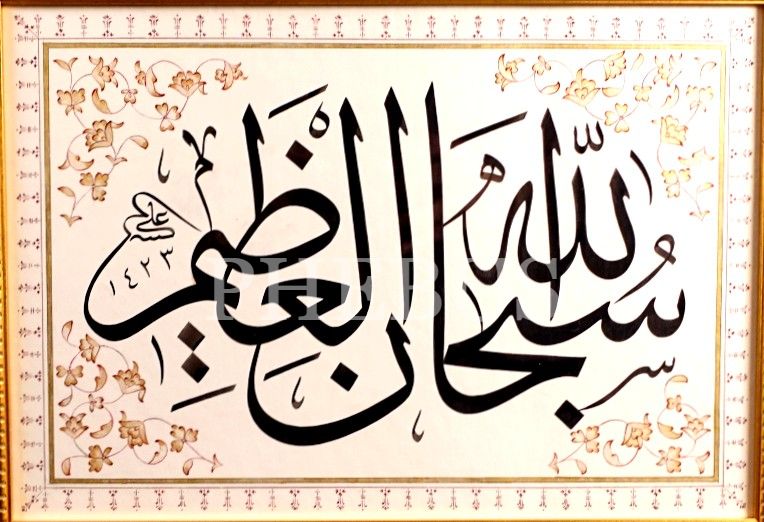 سبحان الله العظيم
علي
١٤٢٣
PHEBUS